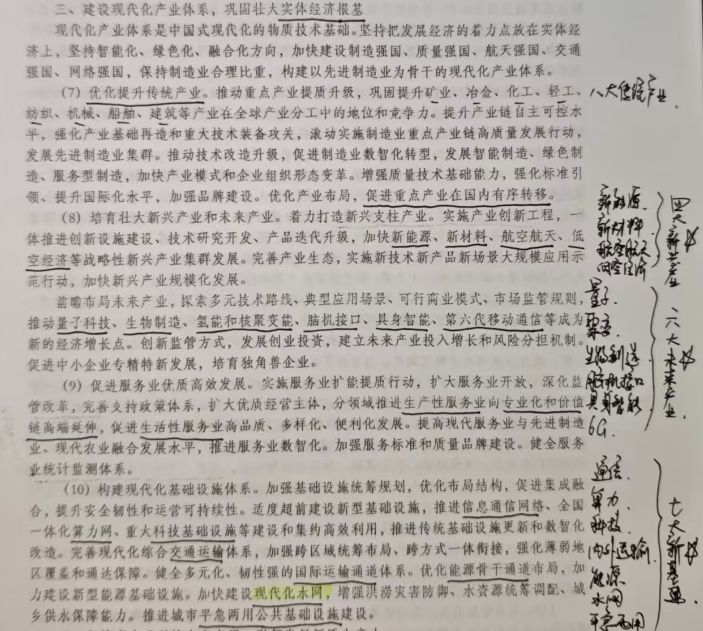 三、建设现代化产业体系，巩固壮大实体经济根基
现代化产业体系是中国式现代化的物质技术基础。坚持把发展经济的着力点放在实体经
济上，坚持智能化、绿色化、融合化方向，加快建设制造强国、质量强国、航天强国、交通
强国、网络强国，保持制造业合理比重，构建以先进制造业为骨干的现代化产业体系。
(7) 优化提升传统产业。推动重点产业提质升级，巩固提升矿业、冶金、化工、轻工、
纺织、机械、船舶、建筑等产业在全球产业分工中的地位和竞争力。提升产业链自主可控水
平，强化产业基础再造和重大技术装备攻关，滚动实施制造业重点产业链高质量发展行动，
发展先进制造业集群。推动技术改造升级，促进制造业数智化转型，发展智能制造、绿色制
造、服务型制造，加快产业模式和企业组织形态变革。增强质量技术基础能力，强化标准引
领、提升国际化水平，加强品牌建设。优化产业布局，促进重点产业在国内有序转移。
(8) 培育壮大新兴产业和未来产业。着力打造新兴支柱产业。实施产业创新工程，一
体推进创新设施建设、技术研究开发、产品迭代升级，加快新能源、新材料、航空航天、低
空经济等战略性新兴产业集群发展。完善产业生态，实施新技术新产品新场景大规模应用示
范行动，加快新兴产业规模化发展。
前瞻布局未来产业，探索多元技术路线、典型应用场景、可行商业模式、市场监管规则，
推动量子科技、生物制造、氢能和核聚变能、脑机接口、具身智能、第六代移动通信等成为
新的经济增长点。创新监管方式，发展创业投资，建立未来产业投入增长和风险分担机制。
促进中小企业专精特新发展，培育独角兽企业。
(9) 促进服务业优质高效发展。实施服务业扩能提质行动，扩大服务业开放，深化监
管改革，完善支持政策体系，扩大优质经营主体，分领域推进生产性服务业向专业化和价值
链高端延伸，促进生活性服务业高品质、多样化、便利化发展。提高现代服务业与先进制造
业、现代农业融合发展水平，推进服务业数智化。加强服务标准和质量品牌建设。健全服务
业统计监测体系。
(10) 构建现代化基础设施体系。加强基础设施统筹规划，优化布局结构，促进集成融
合，提升安全韧性和运营可持续性。适度超前建设新型基础设施，推进信息通信网络、全国
一体化算力网、重大科技基础设施等建设和集约高效利用，推进传统基础设施更新和数智化
改造。完善现代化综合交通运输体系，加强跨区域统筹布局、跨方式一体衔接，强化薄弱地
区覆盖和通达保障。健全多元化、韧性强的国际运输通道体系。优化能源骨干通道布局，加
力建设新型能源基础设施。加快建设现代化水网，增强洪涝灾害防御、水资源统筹调配、城
乡供水保障能力。推进城市平急两用公共基础设施建设。
八大传统产业
新能源
新材料
航空航天
低空经济
四大新兴产业
量子
生物制造
脑机接口
具身智能
6G
六大未来产业
通信
算力
科技
内外运输
能源
水网
平急两用
七大新基建